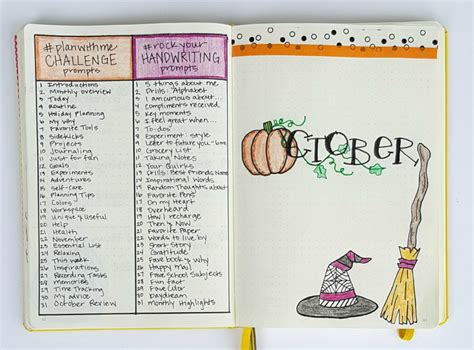 #planwithme
CHALLENGE
prompts
1 Introductions
2 Monthly overview
3 Today
4 Routine
5 Holiday Planning
6 My Why
7 Favorite Tools
8 Sidekicks
9 Projects
10 Journaling
11 Just for fun
12 Goals
13 Experiments
14 Adventures
15 Self-care
16 Planning Tips
17 Colors
18 Workspace
19 Unique & Useful
20 Help
21 Health
22 November
23 Essential List
24 Relaxing
25 This week
26 Inspirations
27 Recording Tasks
28 Memories
29 Time Tracking
30 My advice
31 October Review
#rockyour
HANDWRITING
prompts
1 5 things about me
2 Drills: Alphabet
3 I am curious about...
4 Compliments received
5 Key moments
6 I feel great when...
7 To-dos
8 Experiment - style
9 Letter to future you
10 Grocery List
11 Taking Notes
12 Your Quirks
13 Drills: Best Friends Name
14 Inspirational Words
15 Random Thoughts about
16 Favorite Pens
17 On my Heart
18 Overheard
19 How I recharge
20 Then + Now
21 Favorite Paper
22 Words to live by
23 Short Story
24 Gratitude
25 Fave book & Why
26 Happy Mail
27 Fave School Subjects
28 Fun fact
29 Fave Color
30 Daydream
31 Monthly Highlights
OCTOBER